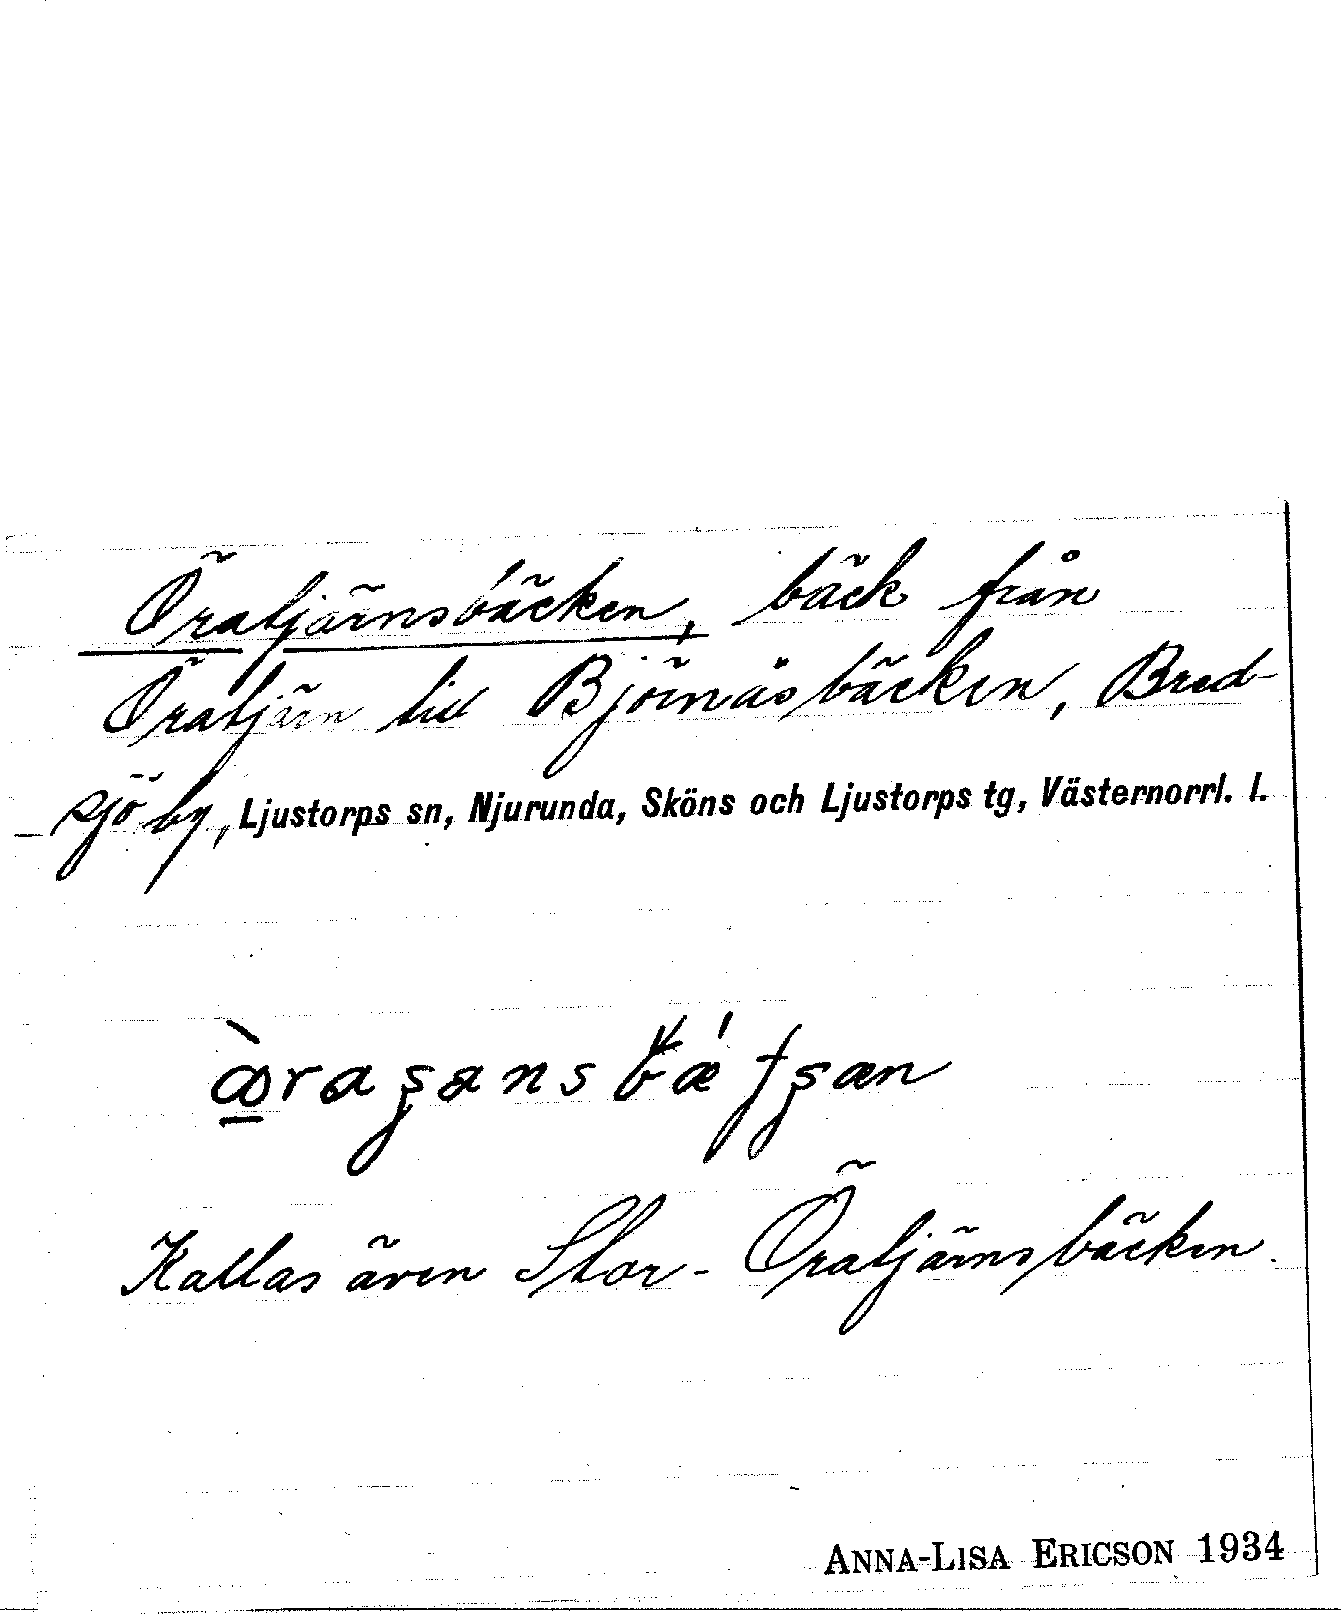 Öratjärnsbäcken, bäck från
Öratjärn till Björnåsbäcken, Bred-
sjö by, Ljustorps sn, Njurunda, Sköns och Ljustorps tg, Västernorrl. l.
Kallas även Stor-Öratjärnsbäcken.
ANNA-LISA ERICSON 1934